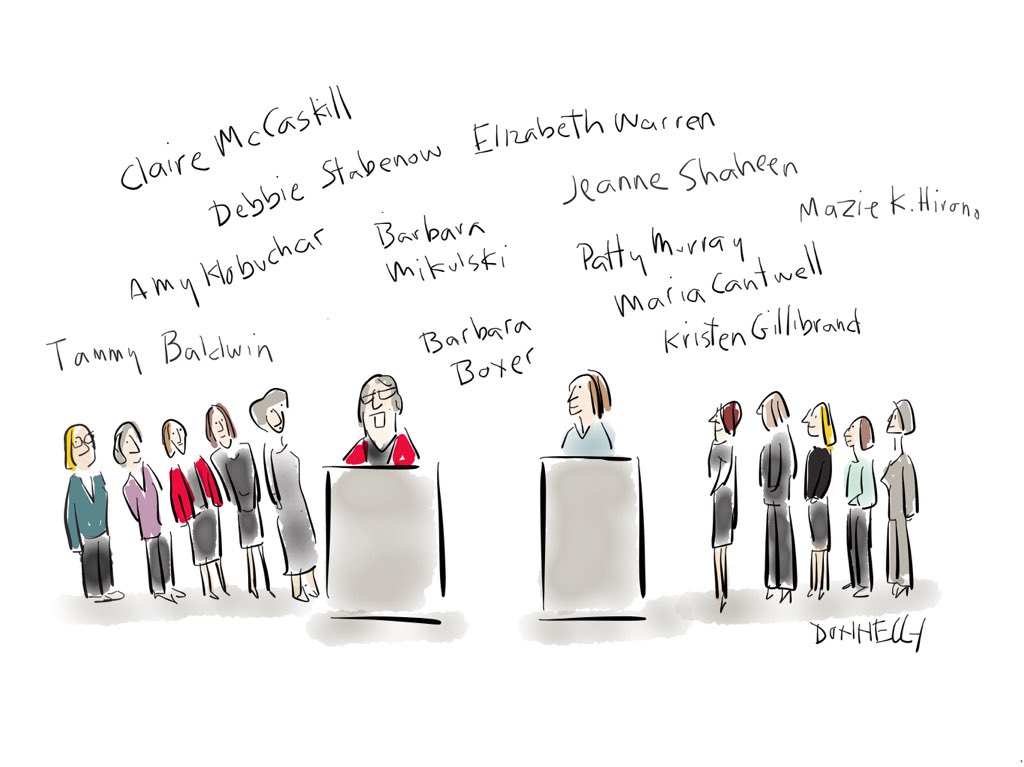 Claire McCaskill
Elizabeth Warren
Debbie Stabenow
Jeanne Shaheen
Mazie K. Hirono
Amy Klobuchar
Barbara
Mikulski
Patty Murray
Maria Cantwell
Kristen Gillibrand
Tammy Baldwin
Barbara
Boxer
DONNELLY